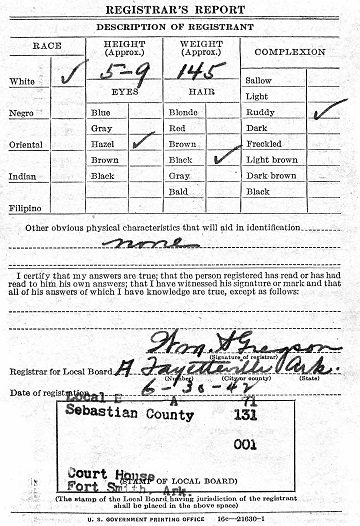 REGISTRAR'S REPORT
DESCRIPTION OF REGISTRANT
RACE HEIGHT (Approx.) WEIGHT (Approx.) COMPLEXION
White ✓ 5-9 145 Sallow
EYES HAIR Light
Negro Blue Blonde Ruddy ✓
Gray Red Dark
Oriental Hazel ✓ Brown Freckled
Brown Black ✓ Light brown
Indian Black Gray Dark brown
Bald Black
Filipino
Other obvious physical characteristics that will aid in identification
none
I certify that my answers are true; that the person registered has read or has had
read to him his own answers; that I have witnessed his signature or mark and that
all of his answers of which I have knowledge are true, except as follows:
Wm. S Gregson
(Signature of registrar)
Registrar for Local Board A Fayetteville Ark.
(Number) (City or county) (State)
Date of registration 6-30-42
Local A 71
Sebastian County 131
001
Court House
(STAMP OF LOCAL BOARD)
Fort Smith, Ark.
(The stamp of the Local Board having jurisdiction of the registrant
shall be placed in the above space)
U. S. GOVERNMENT PRINTING OFFICE 16—21630-1